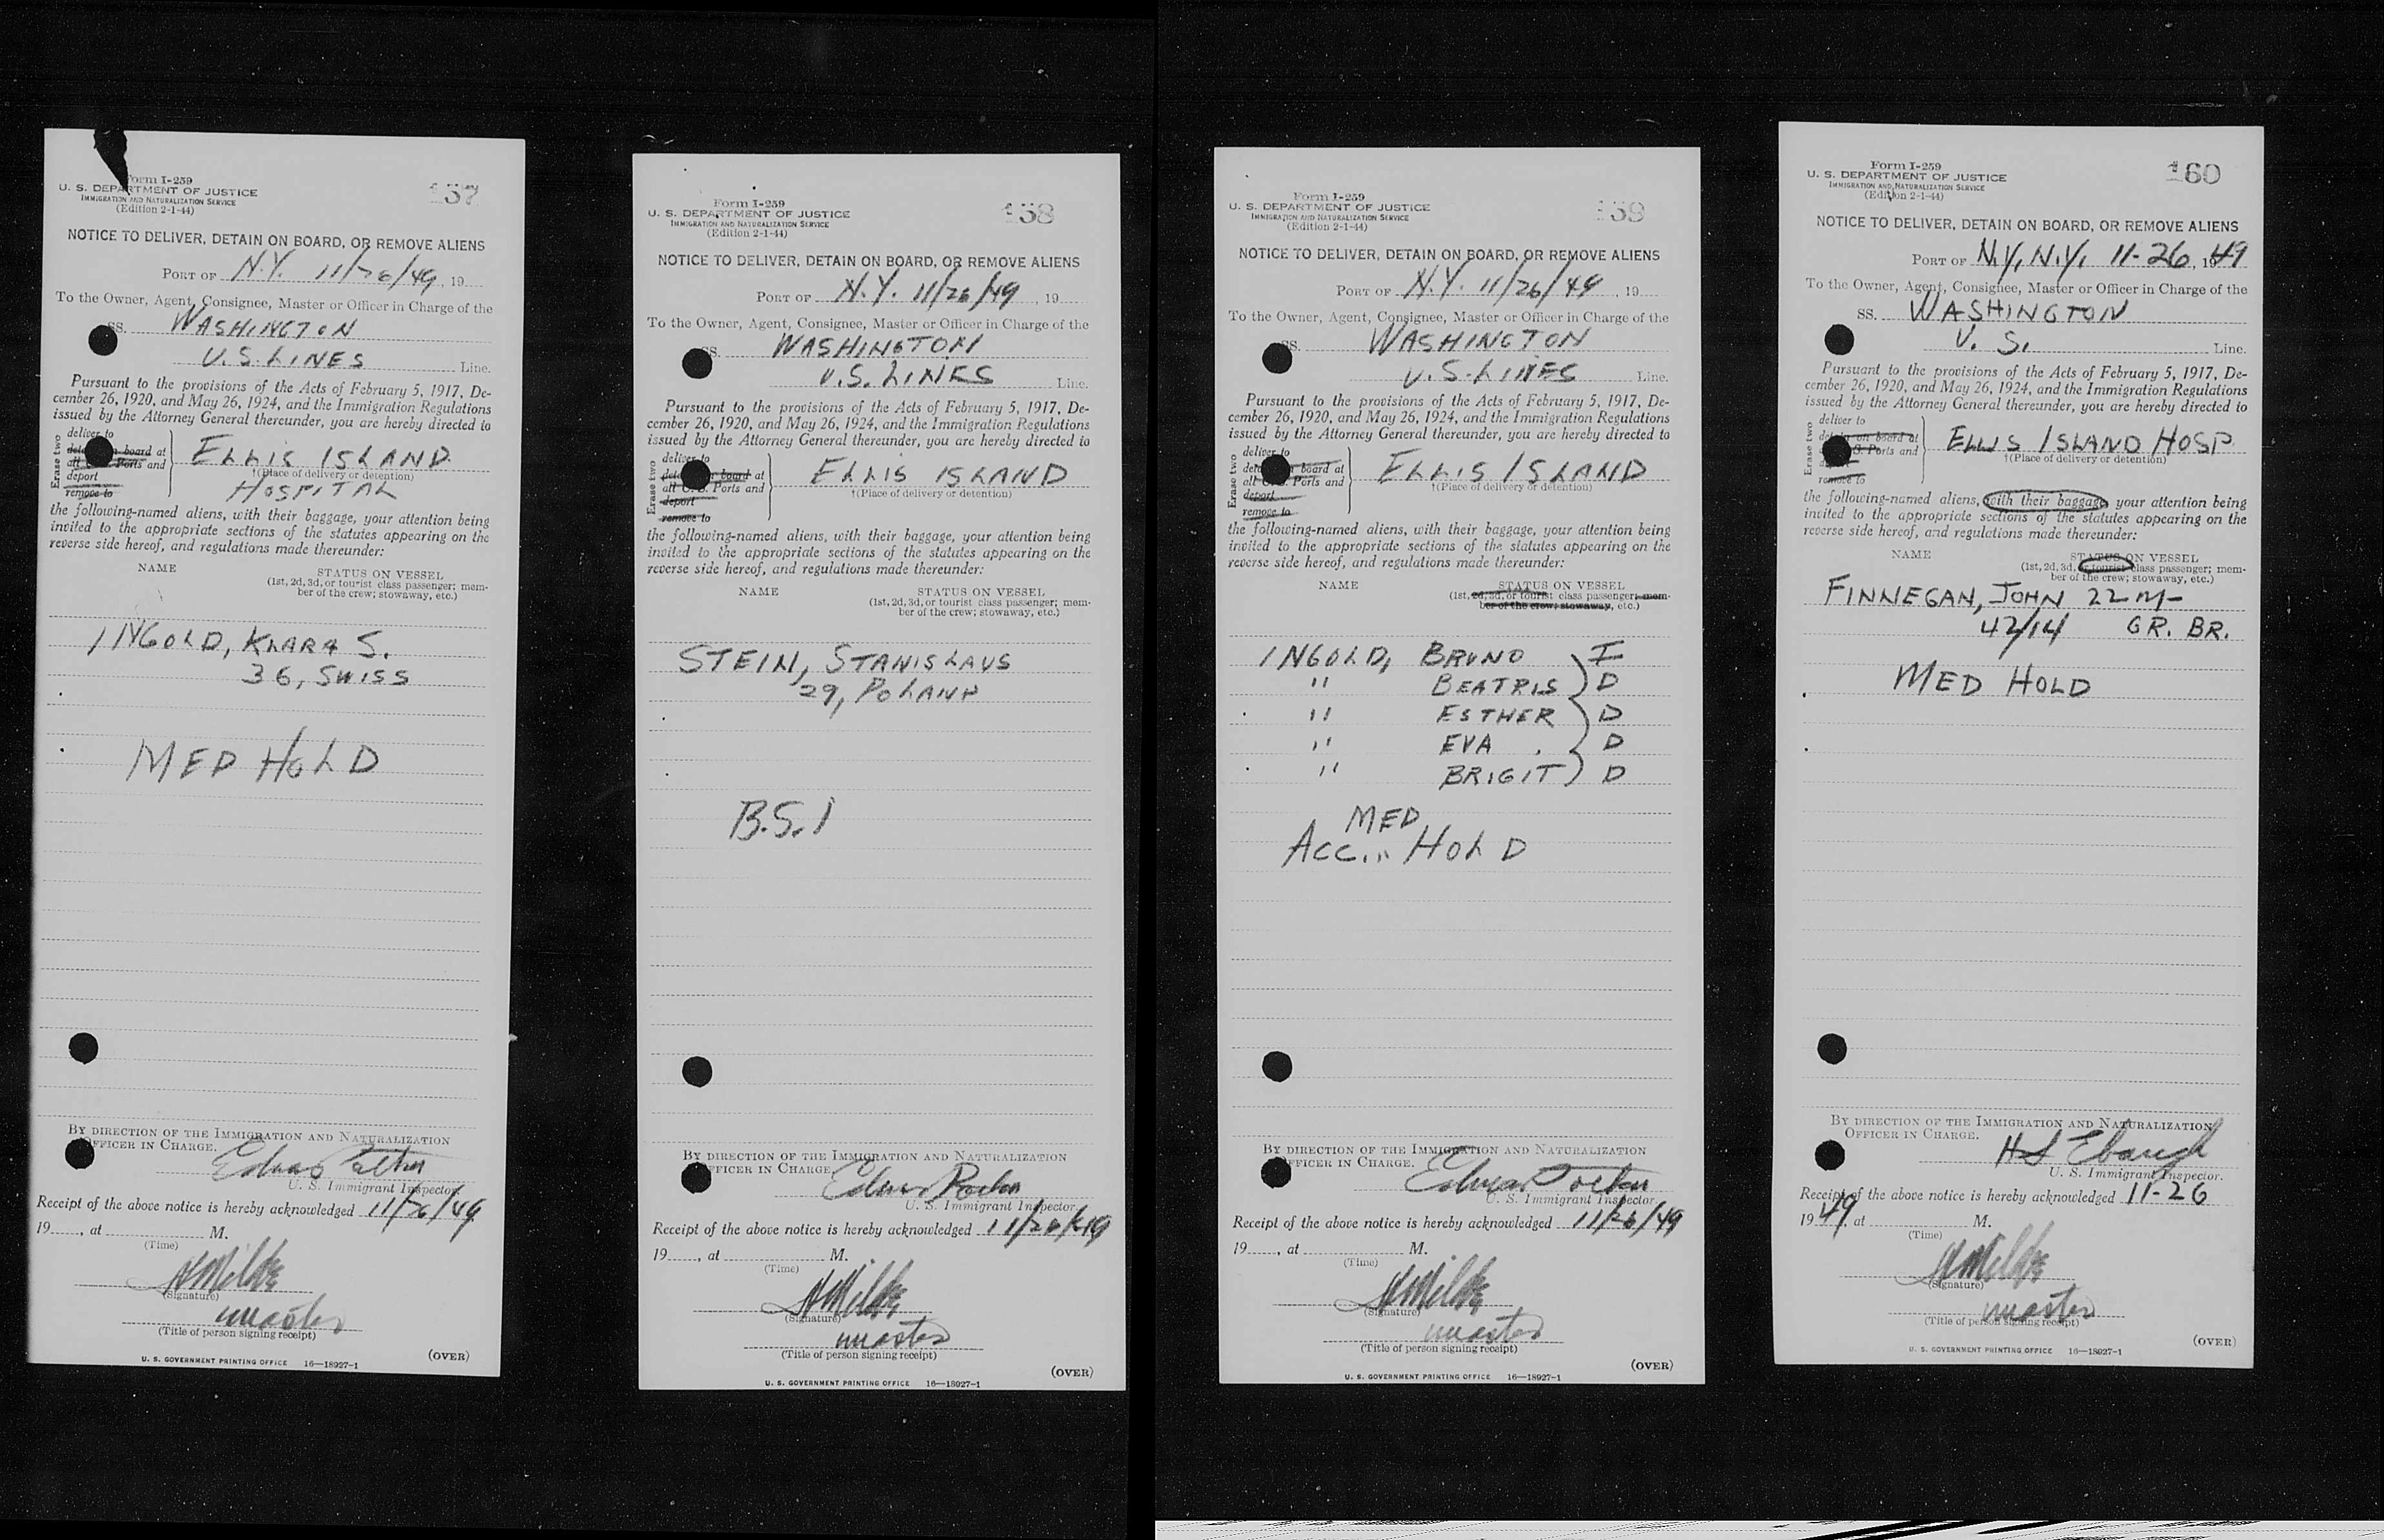 Form I-259
U. S. DEPARTMENT OF JUSTICE
IMMIGRATION AND NATURALIZATION SERVICE
(Edition 2-1-44)
157
NOTICE TO DELIVER, DETAIN ON BOARD, OR REMOVE ALIENS
PORT OF N.Y. 11/26/49, 19
To the Owner, Agent, Consignee, Master or Officer in Charge of the
SS. WASHINGTON
U.S. LINES Line.
Pursuant to the provisions of the Acts of February 5, 1917, De-
cember 26, 1920, and May 26, 1924, and the Immigration Regulations
issued by the Attorney General thereunder, you are hereby directed to
Erase two
deliver to
board at
Ports and
deport
remove to
ELLIS ISLAND
†(Place of delivery or detention)
HOSPITAL
the following-named aliens, with their baggage, your attention being
invited to the appropriate sections of the statutes appearing on the
reverse side hereof, and regulations made thereunder:
NAME
STATUS ON VESSEL
(1st, 2d, 3d, or tourist class passenger; mem-
ber of the crew; stowaway, etc.)
INGOLD, KLARA S.
36, SWISS
MED HOLD
BY DIRECTION OF THE IMMIGRATION AND NATURALIZATION
OFFICER IN CHARGE.
U. S. Immigrant Inspector.
Receipt of the above notice is hereby acknowledged 11/26/49
19, at M.
(Time)
(Signature)
master
(Title of person signing receipt)
U. S. GOVERNMENT PRINTING OFFICE 16—18927-1
(OVER)
Form I-259
U. S. DEPARTMENT OF JUSTICE
IMMIGRATION AND NATURALIZATION SERVICE
(Edition 2-1-44)
158
NOTICE TO DELIVER, DETAIN ON BOARD, OR REMOVE ALIENS
PORT OF N.Y. 11/26/49, 19
To the Owner, Agent, Consignee, Master or Officer in Charge of the
SS. WASHINGTON
U.S. LINES Line.
Pursuant to the provisions of the Acts of February 5, 1917, De-
cember 26, 1920, and May 26, 1924, and the Immigration Regulations
issued by the Attorney General thereunder, you are hereby directed to
Erase two
deliver to
board at
all U. S. Ports and
deport
remove to
ELLIS ISLAND
†(Place of delivery or detention)
the following-named aliens, with their baggage, your attention being
invited to the appropriate sections of the statutes appearing on the
reverse side hereof, and regulations made thereunder:
NAME
STATUS ON VESSEL
(1st, 2d, 3d, or tourist class passenger; mem-
ber of the crew; stowaway, etc.)
STEIN, STANISLAUS
29, POLAND
B.S.I
BY DIRECTION OF THE IMMIGRATION AND NATURALIZATION
OFFICER IN CHARGE.
U. S. Immigrant Inspector.
Receipt of the above notice is hereby acknowledged 11/26/49
19, at M.
(Time)
(Signature)
master
(Title of person signing receipt)
(OVER)
U. S. GOVERNMENT PRINTING OFFICE 16—18927-1
Form I-259
U. S. DEPARTMENT OF JUSTICE
IMMIGRATION AND NATURALIZATION SERVICE
(Edition 2-1-44)
159
NOTICE TO DELIVER, DETAIN ON BOARD, OR REMOVE ALIENS
PORT OF N.Y. 11/26/49, 19
To the Owner, Agent, Consignee, Master or Officer in Charge of the
SS. WASHINGTON
U.S. LINES Line.
Pursuant to the provisions of the Acts of February 5, 1917, De-
cember 26, 1920, and May 26, 1924, and the Immigration Regulations
issued by the Attorney General thereunder, you are hereby directed to
Erase two
deliver to
board at
Ports and
deport
remove to
ELLIS ISLAND
†(Place of delivery or detention)
the following-named aliens, with their baggage, your attention being
invited to the appropriate sections of the statutes appearing on the
reverse side hereof, and regulations made thereunder:
NAME
STATUS ON VESSEL
(1st, 2d, 3d, or tourist class passenger; mem-
ber of the crew; stowaway, etc.)
INGOLD, BRUNO I
" BEATRIS D
" ESTHER D
" EVA D
" BRIGIT D
MED
ACC. HOLD
BY DIRECTION OF THE IMMIGRATION AND NATURALIZATION
OFFICER IN CHARGE.
U. S. Immigrant Inspector.
Receipt of the above notice is hereby acknowledged 11/26/49
19, at M.
(Time)
(Signature)
master
(Title of person signing receipt)
(OVER)
U. S. GOVERNMENT PRINTING OFFICE 16—18927-1
Form I-259
U. S. DEPARTMENT OF JUSTICE
IMMIGRATION AND NATURALIZATION SERVICE
(Edition 2-1-44)
160
NOTICE TO DELIVER, DETAIN ON BOARD, OR REMOVE ALIENS
PORT OF N.Y., N.Y. 11-26, 1949
To the Owner, Agent, Consignee, Master or Officer in Charge of the
SS. WASHINGTON
U. S. Line.
Pursuant to the provisions of the Acts of February 5, 1917, De-
cember 26, 1920, and May 26, 1924, and the Immigration Regulations
issued by the Attorney General thereunder, you are hereby directed to
Erase two
deliver to
on board at
S. Ports and
remove to
ELLIS ISLAND HOSP.
†(Place of delivery or detention)
the following-named aliens, with their baggage, your attention being
invited to the appropriate sections of the statutes appearing on the
reverse side hereof, and regulations made thereunder:
NAME
STATUS ON VESSEL
(1st, 2d, 3d, or tourist class passenger; mem-
ber of the crew; stowaway, etc.)
FINNEGAN, JOHN 22 M-
42/14 GR. BR.
MED HOLD
BY DIRECTION OF THE IMMIGRATION AND NATURALIZATION
OFFICER IN CHARGE.
H S Ebaugh
U. S. Immigrant Inspector.
Receipt of the above notice is hereby acknowledged 11-26
1949, at M.
(Time)
(Signature)
master
(Title of person signing receipt)
(OVER)
U. S. GOVERNMENT PRINTING OFFICE 16—18927-1